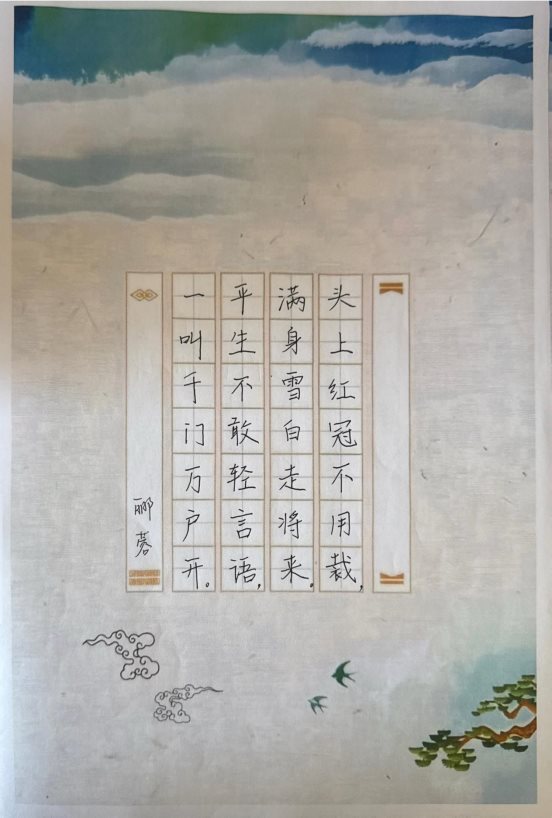 头上红冠不用裁,
满身雪白走将来。
平生不敢轻言语,
一叫千门万户开。
郦蓉